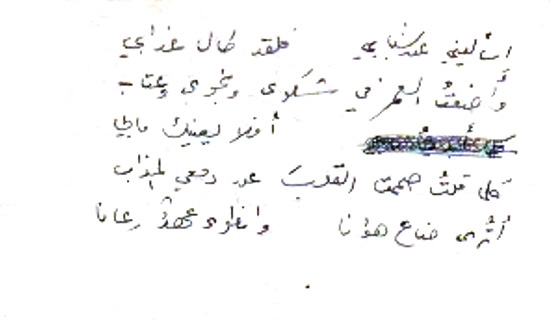 إسأليني عن شبابي فلقد طال عذابي
وأضعتُ العمر في شكوى ونجوى وعتاب
أفلا يعنيك ما بي
كلما قلتُ صمت القلب عن دمعي المذاب
أتُرى ضاع هوانا وانطوى عهدُ رعانا